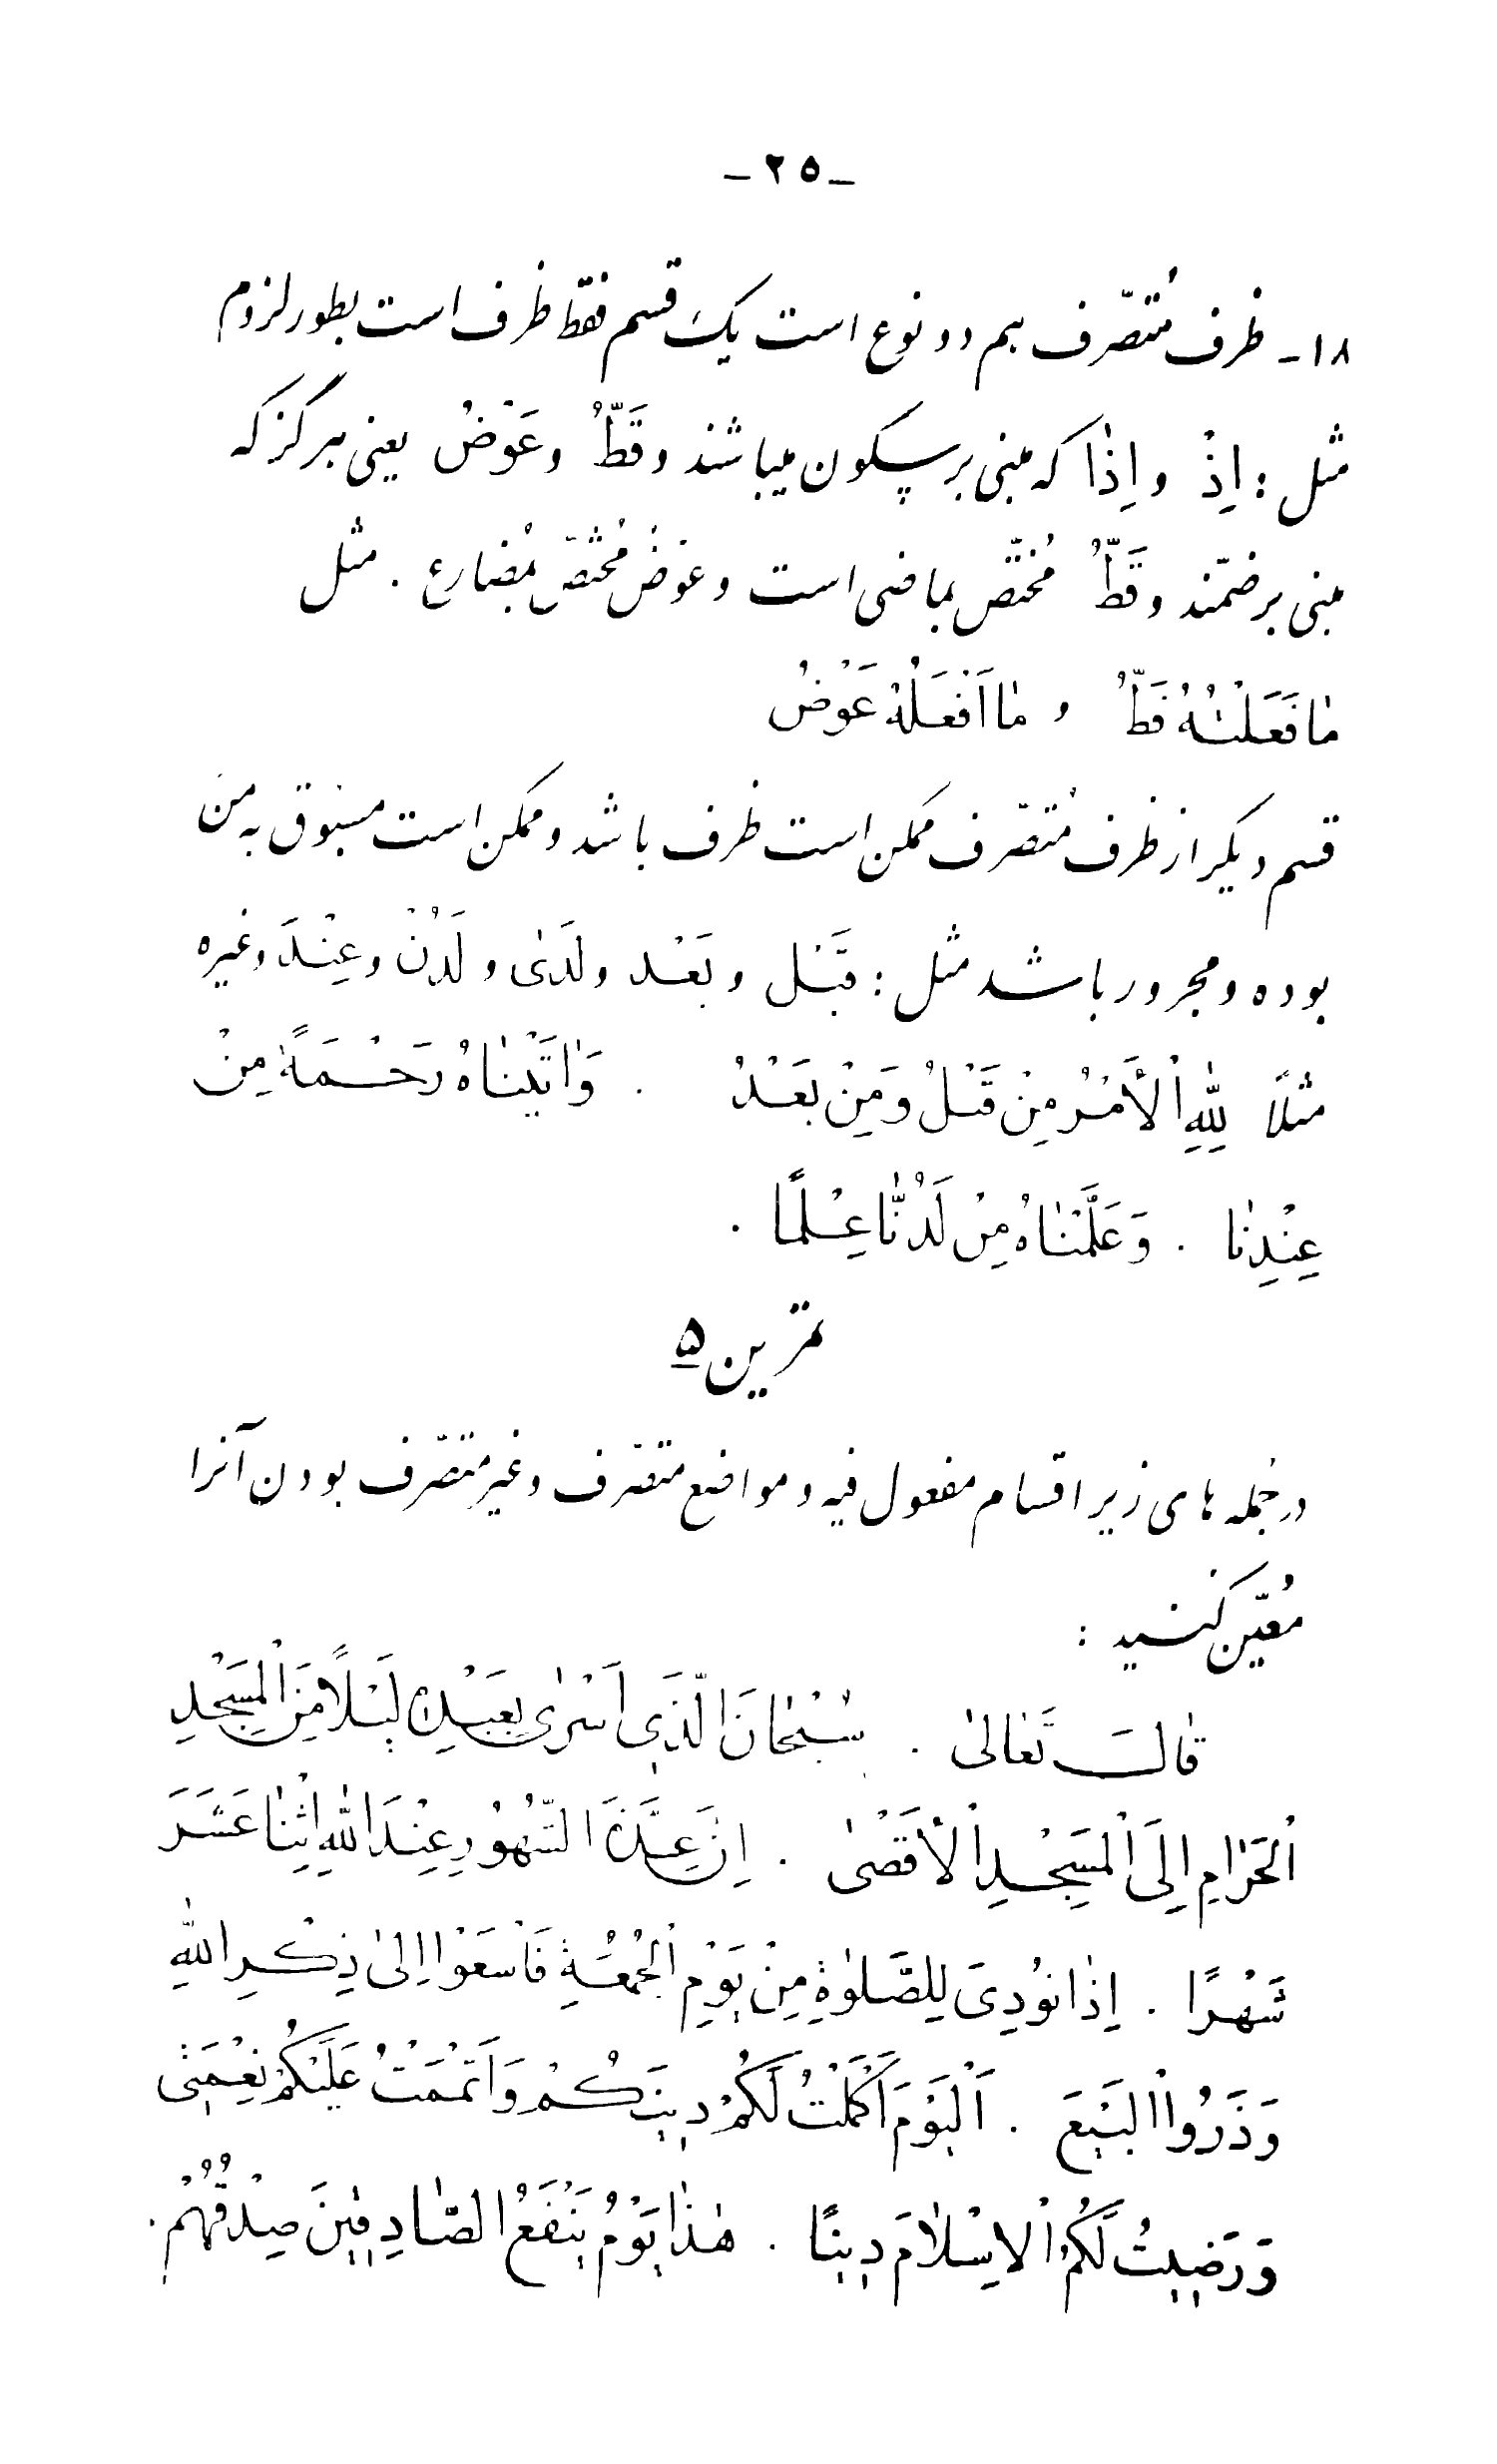 - ۲۵ -
۱۸- ظرف مُتصّرف هم دو نوع است یک قسم فقط ظرف است بطور لزوم
مثل : اِذْ و اِذٰا که مبنی بر سکون میباشند و قَطُّ و عَوْضُ یعنی هرگز که
مبنی بر ضمّند و قَطُّ مُختّص بماضی است و عَوْضُ مُختّص بمُضارع . مثل
مٰا فَعَلْتُهُ قَطُّ و مٰا اَفْعَلُهُ عَوْضُ
قسم دیگر از ظرف مُتصّرف ممکن است ظرف باشد و ممکن است مسبوق به من
بوده و مجرور باشد مثل : قَبْل و بَعْد و لَدیٰ و لَدُنْ و عِنْدَ و غیره
مثلاً لِلّٰهِ الْأَمْرُ مِنْ قَبْلُ وَ مِنْ بَعْدُ . وَ اٰتَیْنٰاهُ رَحْمَةً مِنْ
عِنْدِنٰا . وَ عَلَّمْنٰاهُ مِنْ لَدُنّٰا عِلْمًا .
تمرین ۵
در جمله های زیر اقسام مفعول فیه و مواضع متصّرف و غیر متصّرف بودن آنرا
مُعیّن کنید :
قٰالَ تَعٰالیٰ . سُبْحٰانَ الَّذِی اَسْریٰ بِعَبْدِهِ لَیْلًا مِنَ الْمَسْجِدِ
الْحَرٰامِ اِلَی الْمَسْجِدِ الْأَقْصٰی . اِنَّ عِدَّةَ الشُّهُورِ عِنْدَ اللّٰهِ اثْنٰا عَشَرَ
شَهْرًا . اِذٰا نُودِیَ لِلصَّلوٰةِ مِنْ یَوْمِ الْجُمُعَةِ فَاسْعَوْا اِلیٰ ذِکْرِ اللّٰهِ
وَ ذَرُوا الْبَیْعَ . اَلْیَوْمَ اَکْمَلْتُ لَکُمْ دِینَکُمْ وَ اَتْمَمْتُ عَلَیْکُمْ نِعْمَتی
وَ رَضِیتُ لَکُمُ الْاِسْلٰامَ دِینًا . هٰذٰا یَوْمُ یَنْفَعُ الصّٰادِقِینَ صِدْقُهُمْ .